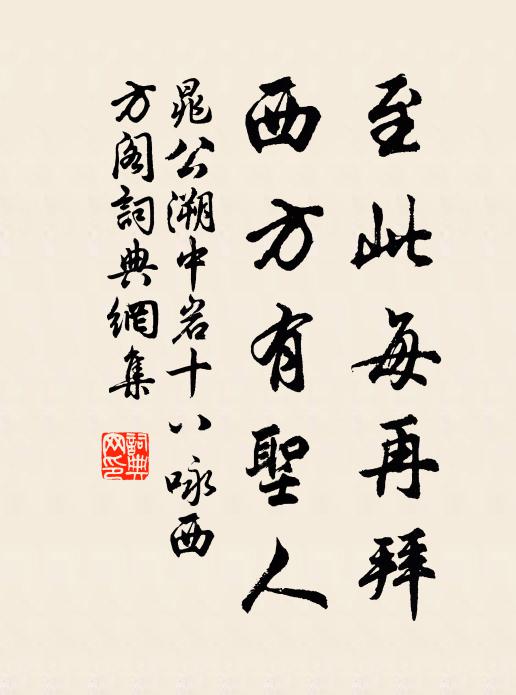 至此每再拜
西方有聖人
晁公溯中岩十八咏西
方阁詞典網集
詞典网印